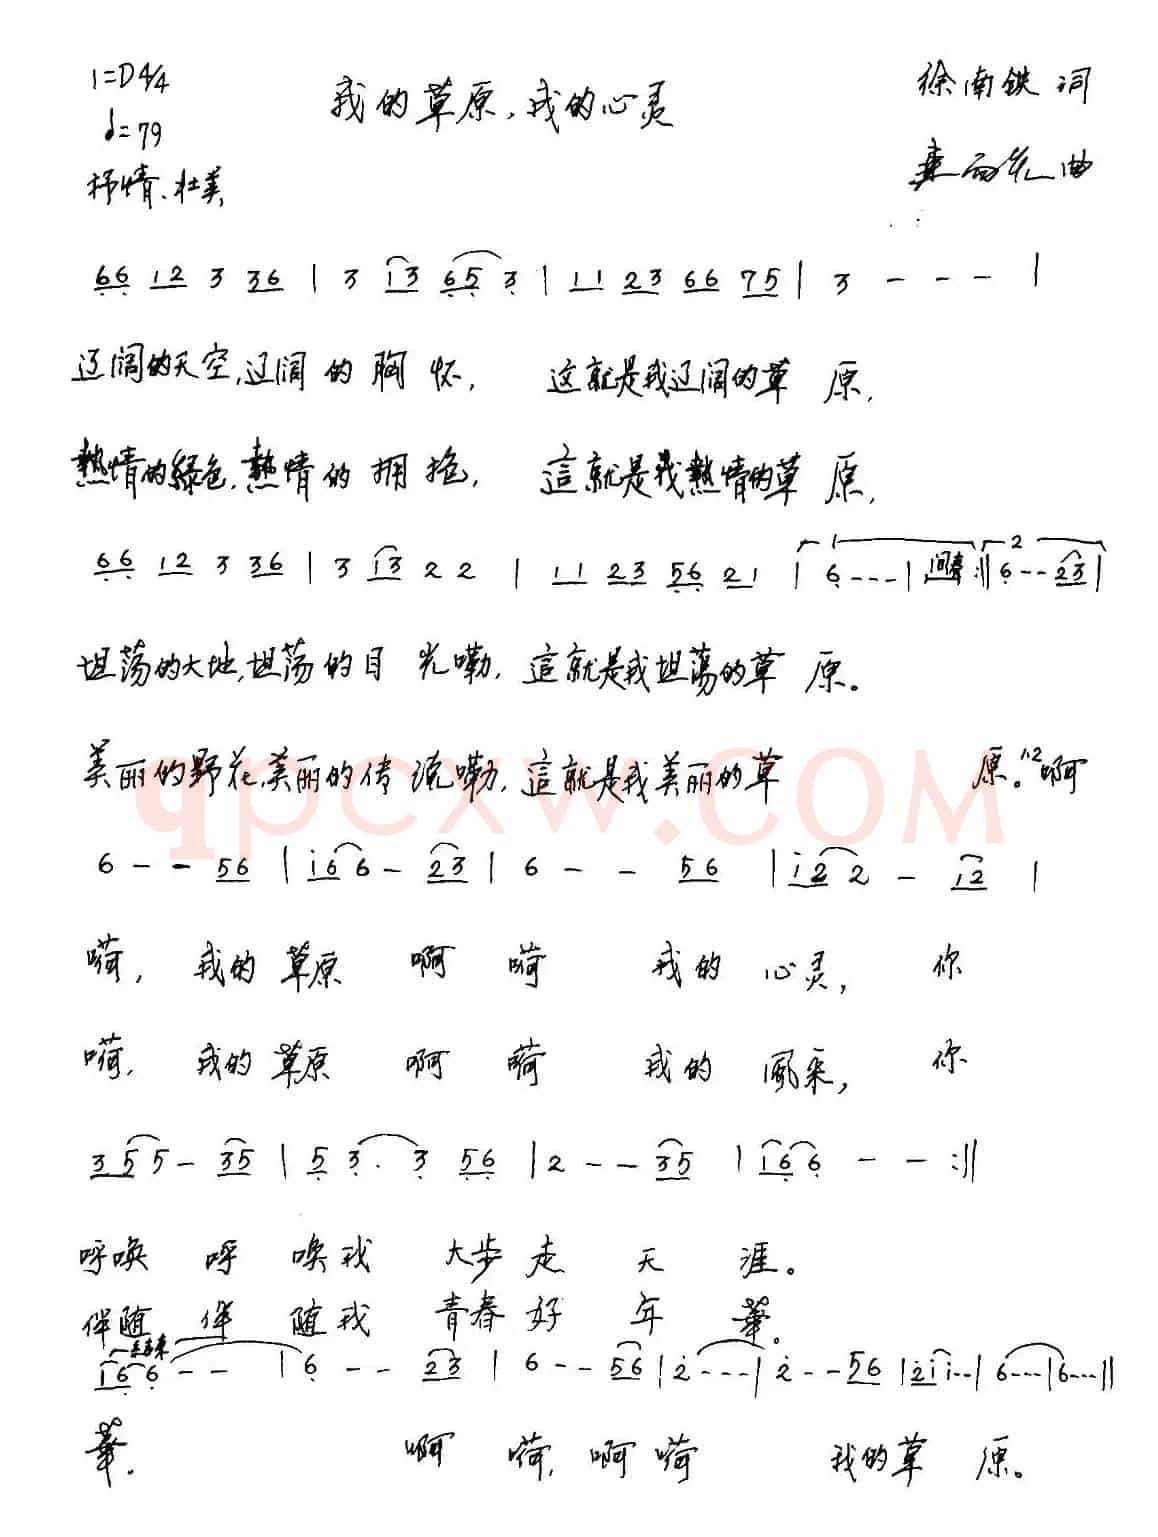 1=D4/4
我的草原,我的心灵
徐南铁 词
♩=79
抒情、壮美
曲
66 12 3 36 | 3 13 65 3 | 11 23 66 75 | 3 - - - |
辽阔的天空,辽阔的胸怀, 这就是我辽阔的草原,
熱情的綠色,熱情的拥抱, 這就是我熱情的草原,
66 12 3 36 | 3 13 2 2 | 11 23 56 21 | 1 6 - - - | 间奏 :|| 2 6 - - 23 |
坦荡的大地,坦荡的目光嘞,這就是我坦蕩的草原。
美丽的野花,美丽的传说嘞,這就是我美丽的草原。1.2啊
qpcxw.COM
6 - - 56 | i6 6 - 23 | 6 - - 56 | i2 2 - i2 |
嗬, 我的草原 啊 嗬 我的心灵, 你
嗬, 我的草原 啊 嗬 我的風采, 你
35 5 - 35 | 5 3 · 3 56 | 2 - - 35 | 16 6 - - :||
呼唤 呼唤我 大步走天涯。
伴随 伴随我 青春好年華。
结束
16 6 - - | 6 - - 23 | 6 - - 56 | 2 - - - | 2 - - 56 | 2i i - - | 6 - - - | 6 - - - ||
華。 啊 嗬,啊嗬 我的草原。